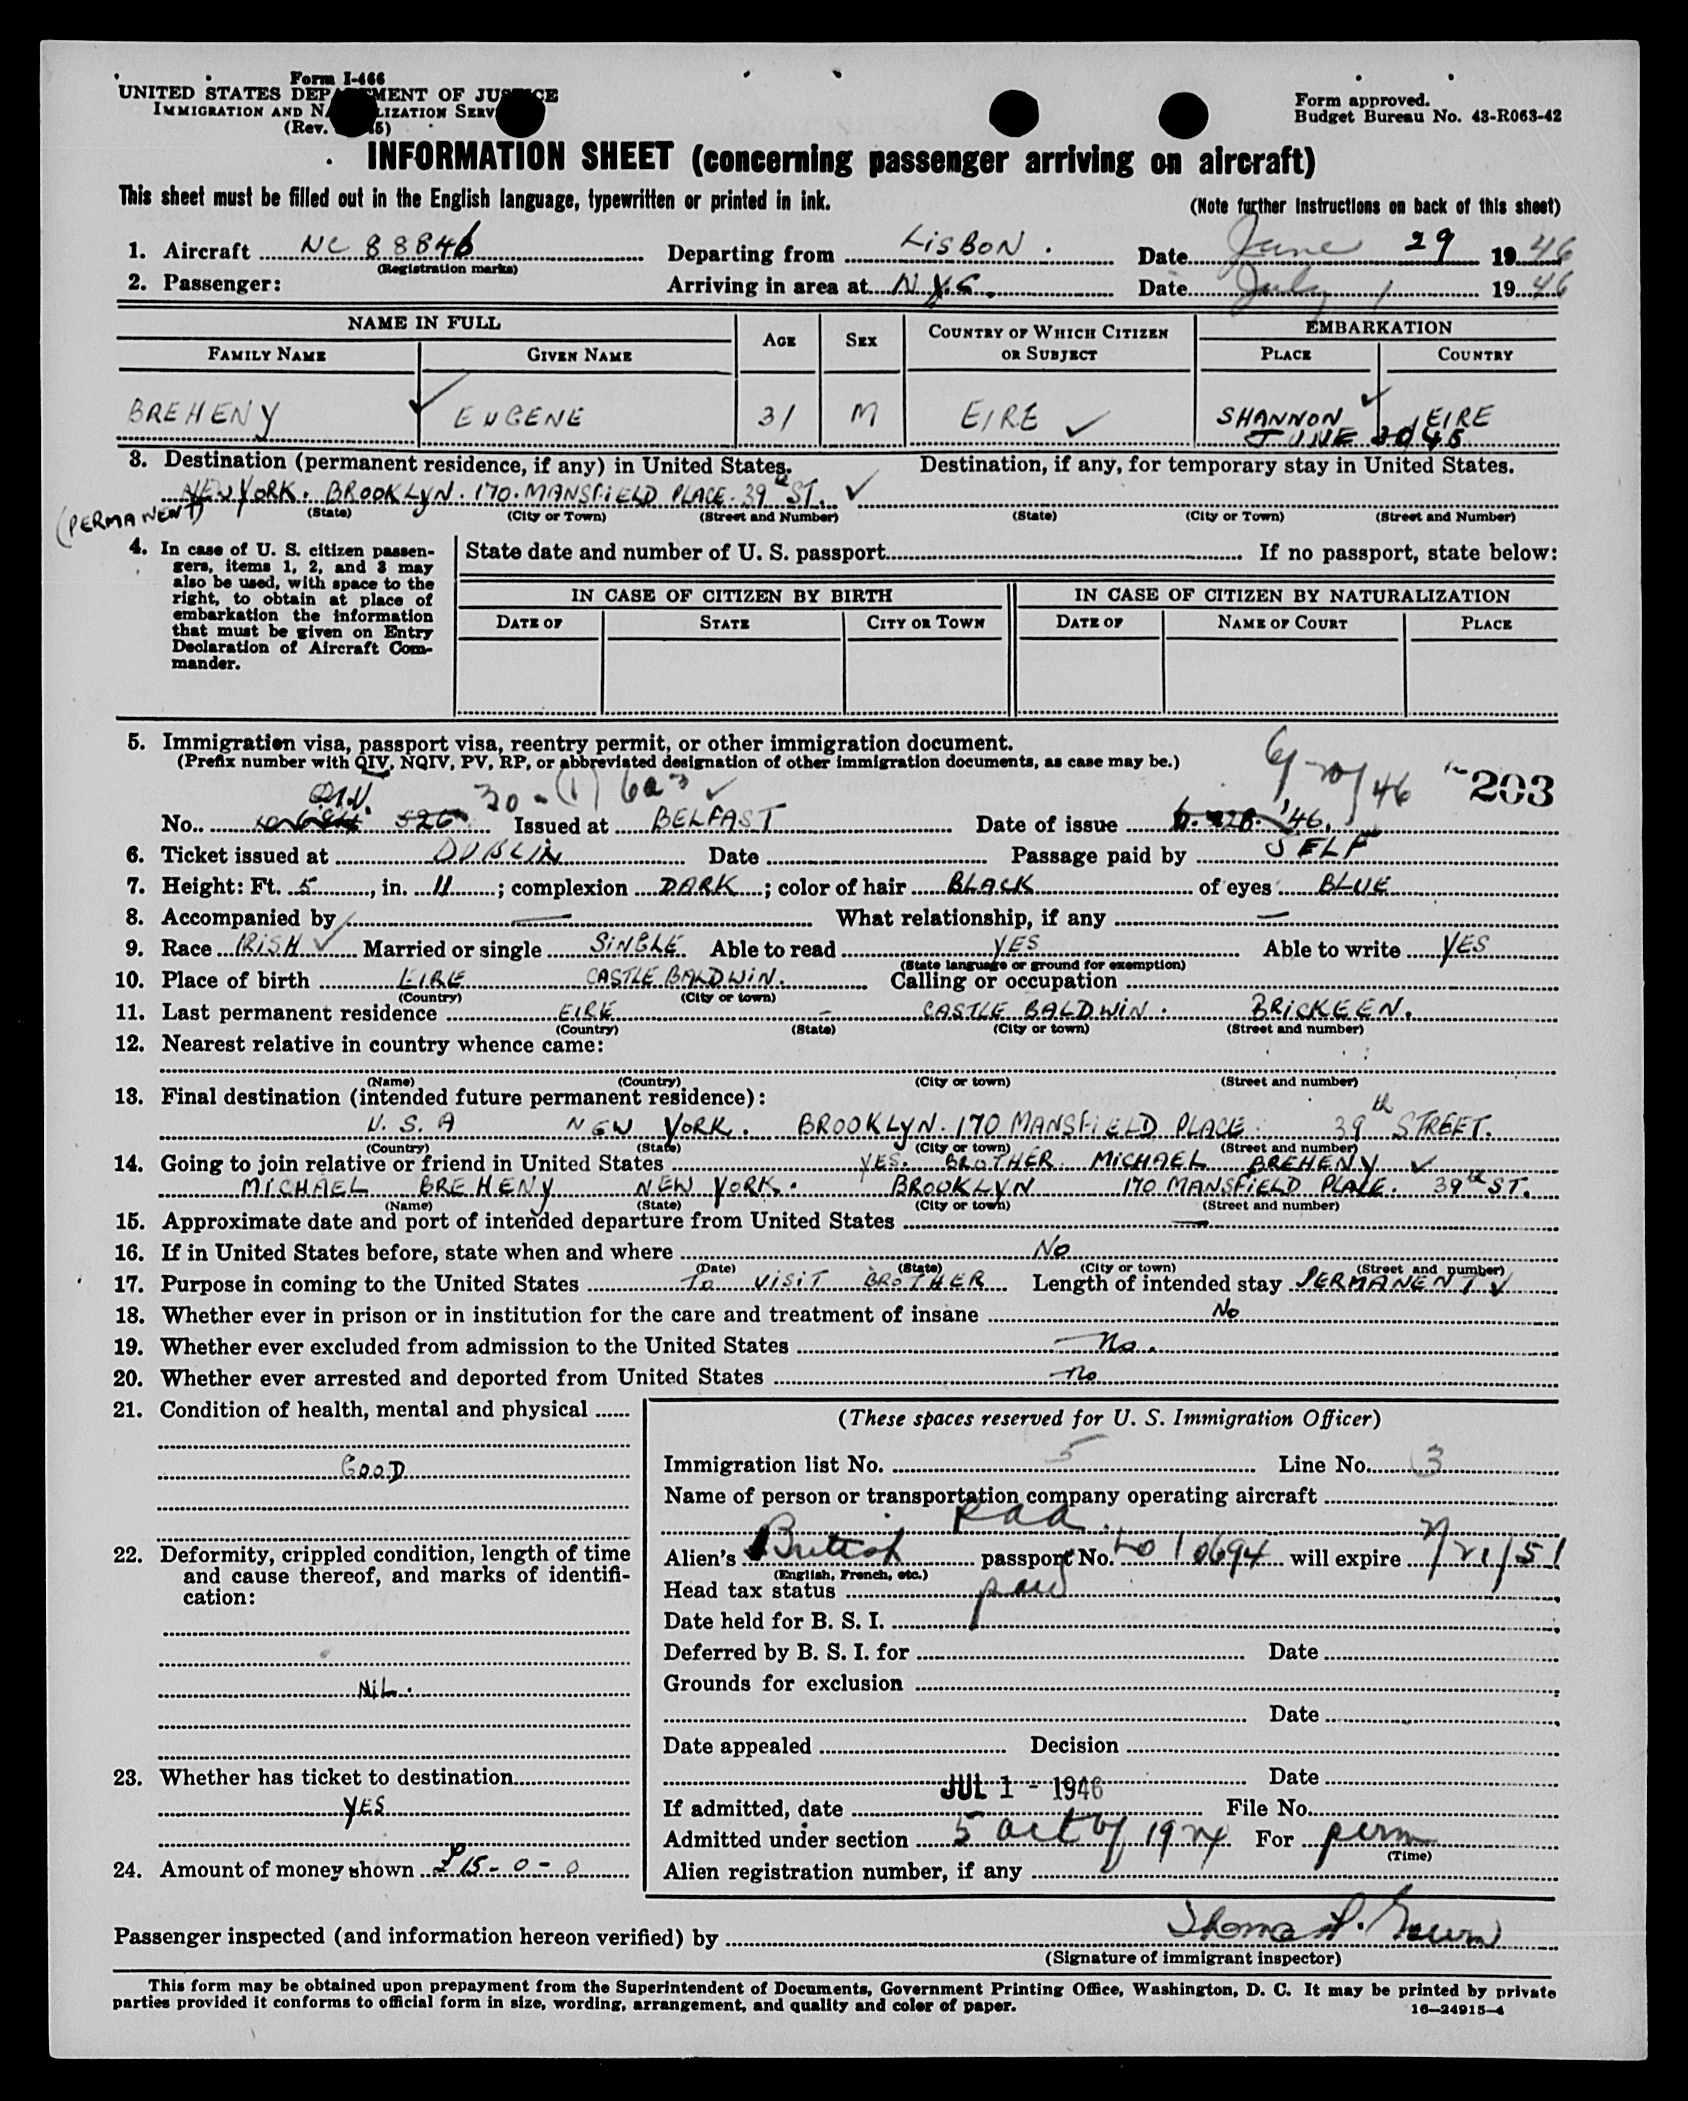 Form I-466
UNITED STATES DEPARTMENT OF JUSTICE
IMMIGRATION AND NATURALIZATION SERV
(Rev. 5)
Form approved.
Budget Bureau No. 43-R063-42
INFORMATION SHEET (concerning passenger arriving on aircraft)
This sheet must be filled out in the English language, typewritten or printed in ink.
(Note further instructions on back of this sheet)
1. Aircraft NC 88846 Departing from LISBON. Date June 29 1946
(Registration marks)
2. Passenger: Arriving in area at N.Y.C. Date July 1 1946
NAME IN FULL
FAMILY NAME GIVEN NAME AGE SEX COUNTRY OF WHICH CITIZEN OR SUBJECT EMBARKATION PLACE COUNTRY
BREHENY EUGENE 31 M EIRE SHANNON EIRE
JUNE 30, 46
3. Destination (permanent residence, if any) in United States. Destination, if any, for temporary stay in United States.
NEW YORK. BROOKLYN. 170. MANSFIELD PLACE. 39th ST.
(PERMANENT) (State) (City or Town) (Street and Number) (State) (City or Town) (Street and Number)
4. In case of U. S. citizen passen-
gers, items 1, 2, and 3 may
also be used, with space to the
right, to obtain at place of
embarkation the information
that must be given on Entry
Declaration of Aircraft Com-
mander.
State date and number of U. S. passport If no passport, state below:
IN CASE OF CITIZEN BY BIRTH IN CASE OF CITIZEN BY NATURALIZATION
DATE OF STATE CITY OR TOWN DATE OF NAME OF COURT PLACE
5. Immigration visa, passport visa, reentry permit, or other immigration document.
(Prefix number with QIV, NQIV, PV, RP, or abbreviated designation of other immigration documents, as case may be.)
6/20/46 203
QIV. 30-(1) 603
No. 526 Issued at BELFAST Date of issue 6. 28. '46.
6. Ticket issued at DUBLIN Date Passage paid by SELF
7. Height: Ft. 5, in. 11; complexion DARK; color of hair BLACK of eyes BLUE
8. Accompanied by — What relationship, if any —
9. Race IRISH Married or single SINGLE Able to read YES Able to write YES
(State language or ground for exemption)
10. Place of birth EIRE CASTLE BALDWIN. Calling or occupation
(Country) (City or town)
11. Last permanent residence EIRE - CASTLE BALDWIN. BRICKEEN.
(Country) (State) (City or town) (Street and number)
12. Nearest relative in country whence came:
(Name) (Country) (City or town) (Street and number)
13. Final destination (intended future permanent residence):
U. S. A NEW YORK. BROOKLYN. 170 MANSFIELD PLACE. 39th STREET.
(Country) (State) (City or town) (Street and number)
14. Going to join relative or friend in United States YES. BROTHER. MICHAEL BREHENY
MICHAEL BREHENY NEW YORK. BROOKLYN 170 MANSFIELD PLACE. 39th ST.
(Name) (State) (City or town) (Street and number)
15. Approximate date and port of intended departure from United States —
16. If in United States before, state when and where No
(Date) (State) (City or town) (Street and number)
17. Purpose in coming to the United States To VISIT BROTHER Length of intended stay PERMANENT
18. Whether ever in prison or in institution for the care and treatment of insane No
19. Whether ever excluded from admission to the United States No.
20. Whether ever arrested and deported from United States No
21. Condition of health, mental and physical
GOOD
22. Deformity, crippled condition, length of time
and cause thereof, and marks of identifi-
cation:
NIL.
23. Whether has ticket to destination
YES
24. Amount of money shown £15-0-0
(These spaces reserved for U. S. Immigration Officer)
Immigration list No. 5 Line No. 3
Name of person or transportation company operating aircraft
Alien's British passport No. LO10694 will expire 7/21/51
(English, French, etc.)
Head tax status paid
Date held for B. S. I.
Deferred by B. S. I. for Date
Grounds for exclusion
Date
Date appealed Decision
Date
If admitted, date JUL 1 - 1946 File No.
Admitted under section 5 act of 1924 For perm
(Time)
Alien registration number, if any
Passenger inspected (and information hereon verified) by Thomas
(Signature of immigrant inspector)
This form may be obtained upon prepayment from the Superintendent of Documents, Government Printing Office, Washington, D. C. It may be printed by private
parties provided it conforms to official form in size, wording, arrangement, and quality and color of paper.
16—24915-4